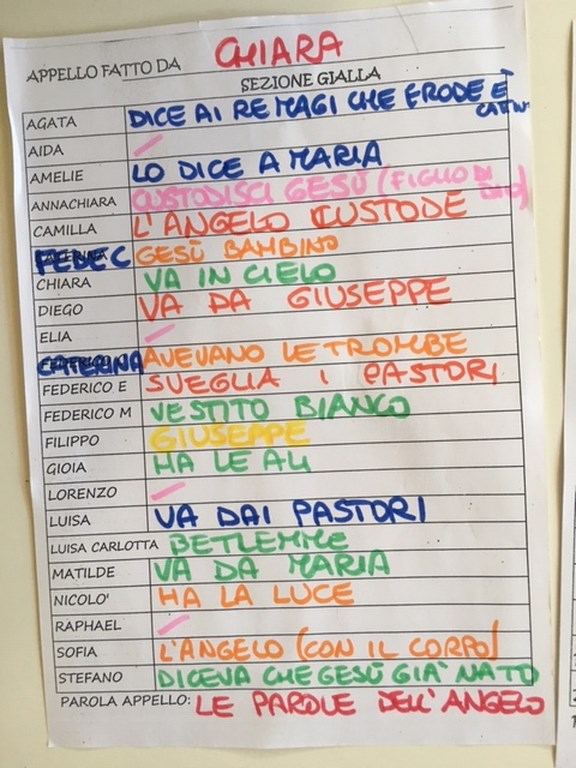 APPELLO FATTO DA CHIARA
SEZIONE GIALLA
AGATA DICE AI RE MAGI CHE ERODE È
AIDA
AMELIE LO DICE A MARIA
ANNACHIARA CUSTODISCI GESÙ (FIGLIO DI DIO)
CAMILLA L'ANGELO CUSTODE
FEDE C GESÙ BAMBINO
CHIARA VA IN CIELO
DIEGO VA DA GIUSEPPE
ELIA
CATERINA AVEVANO LE TROMBE
FEDERICO E SVEGLIA I PASTORI
FEDERICO M VESTITO BIANCO
FILIPPO GIUSEPPE
GIOIA HA LE ALI
LORENZO
LUISA VA DAI PASTORI
LUISA CARLOTTA BETLEMME
MATILDE VA DA MARIA
NICOLO' HA LA LUCE
RAPHAEL
SOFIA L'ANGELO (CON IL CORPO)
STEFANO DICEVA CHE GESÙ GIÀ NATO
PAROLA APPELLO: LE PAROLE DELL'ANGELO